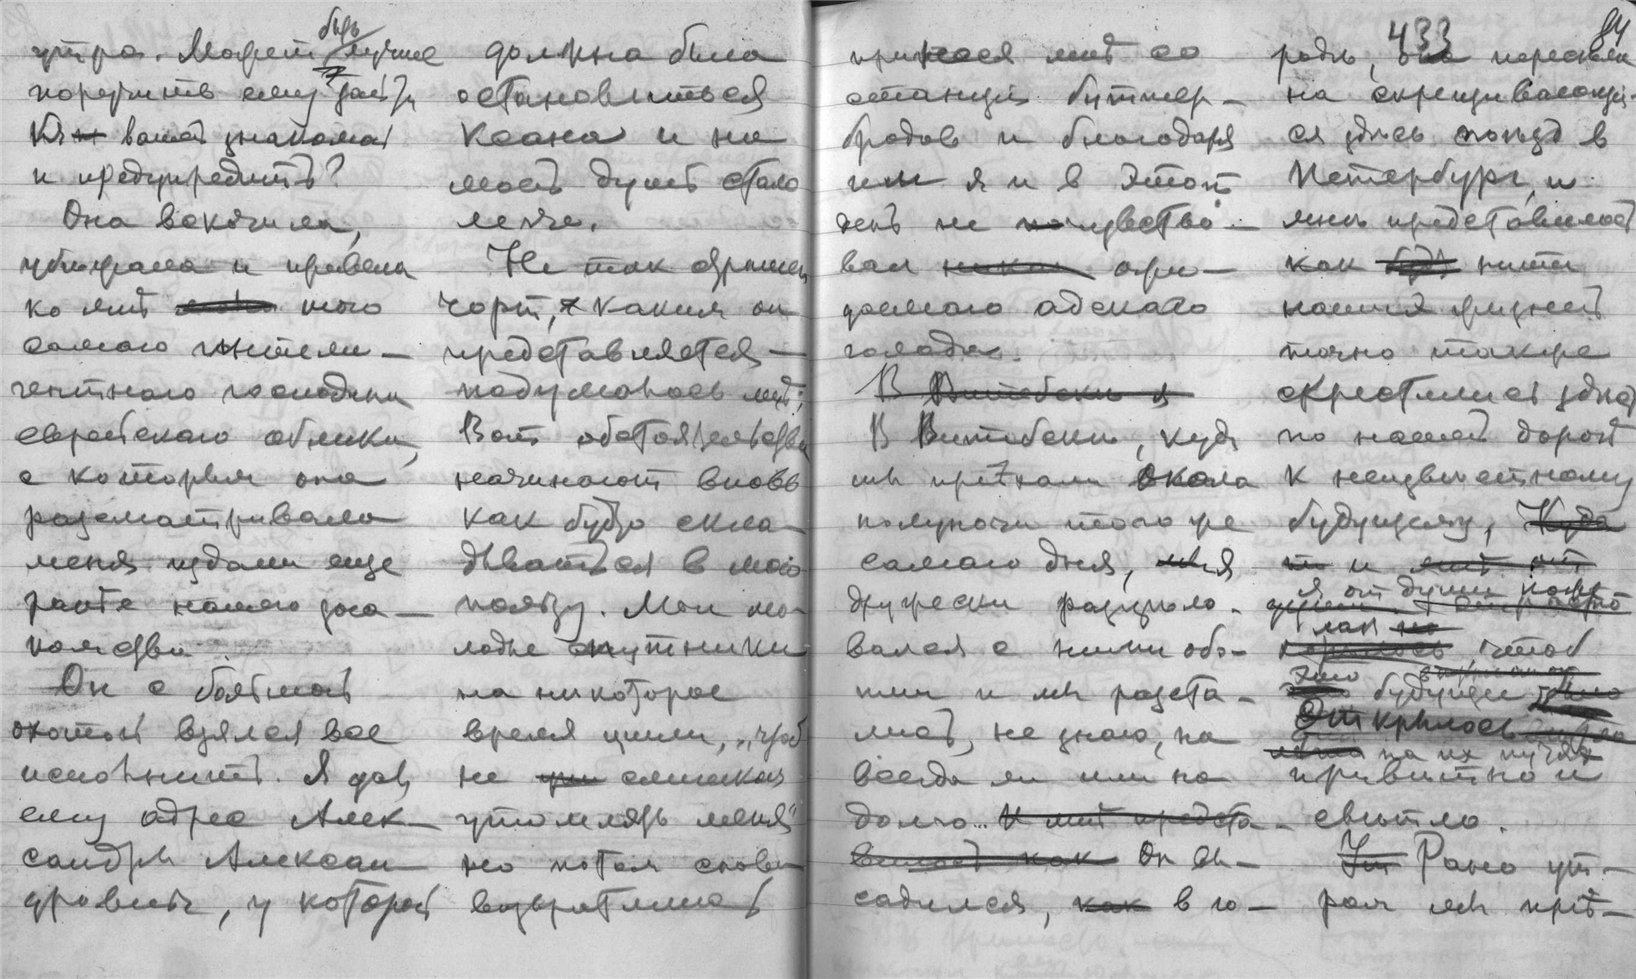 433
84
утра. Может быть лучше
поручить ему зайти
к вашей знакомой
и предупредить?
Она вскочила,
убежала и привела
ко мне того
самого интели-
гентного господина
еврейского облика,
с которым она
разсматривала
меня издали еще
ранее нашего зна-
комства.
Он с большой
охотой взялся все
исполнить. Я дал
ему адрес Алек-
сандры Алексан-
дровны, у которой
должна была
остановиться
Ксана и на
моей душе стало
легче.
Не так страшен
чорт, каким он
представляется —
подумалось мне;
Вот обстоятельства
начинают вновь
как будто скла-
дываться в мою
пользу. Мои мо-
лодые спутники
на некоторое
время ушли, „чтоб
не слишком
утомлять меня"
но потом снова
возвратились
принеся мне со
станции буттер-
бродов и благодаря
им я и в этот
день не чувство-
вал ожи-
даемаго адскаго
голода.
В Витебске я
В Витебске, куда
мы приехали около
полуночи того же
самаго дня, я
дружески разцело-
вался с ними обо-
ими и мы разста-
лись, не знаю, на
всегда ли или на
долго.. И мне предста-
вилось как Он вы-
садился, как в го-
родь, она пересела
на скрещивающий-
ся здесь поезд в
Петербург, и
мне представилось
как нити
нашей жизней
точно также
скрестились здесь
по нашей дороге
к неизвестному
будущему, Куда
и
я от души поже-
лал чтоб
это будущее
открылось
на их путях
приветно и
светло.
Ут Рано ут-
ром мы прие-